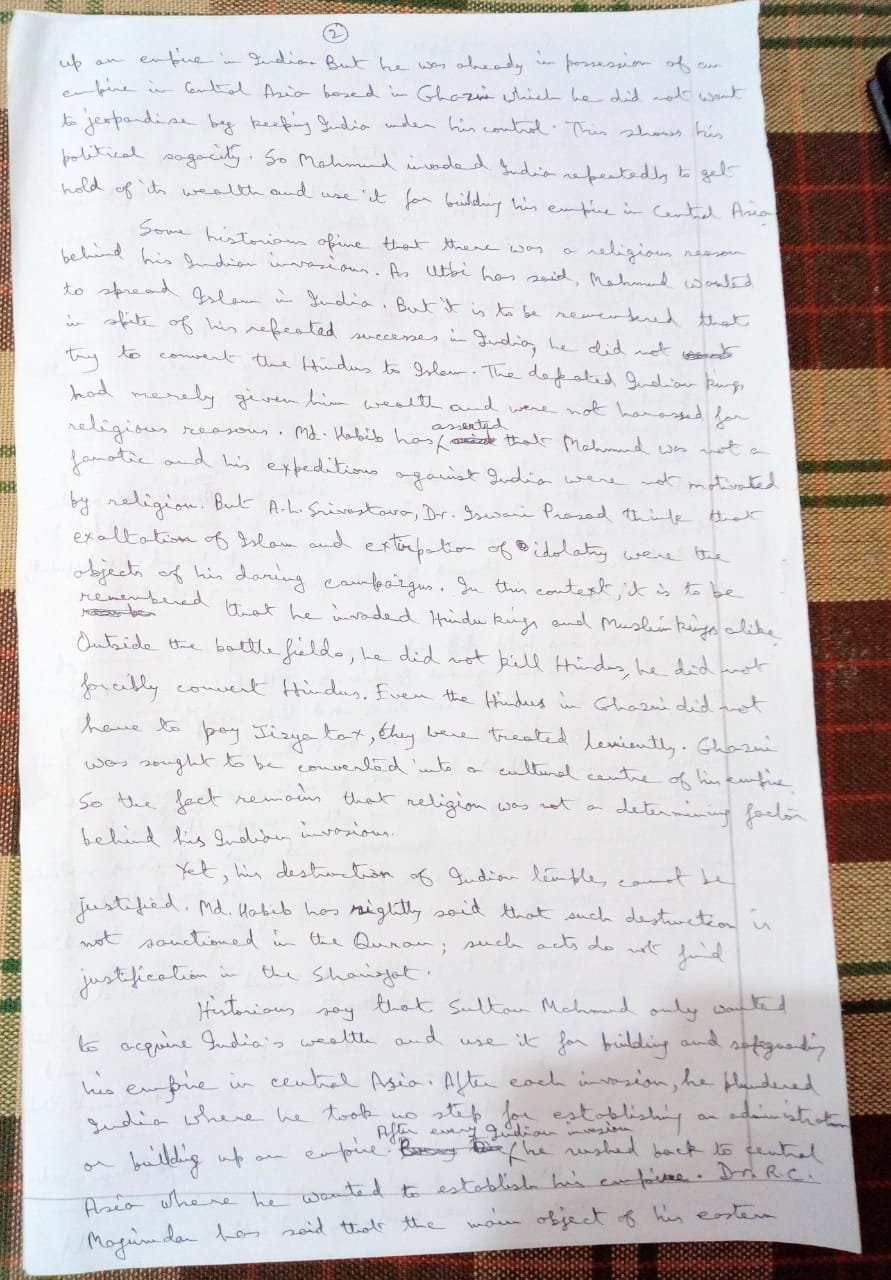 2
up an empire in India. But he was already in possession of an
empire in Central Asia based in Ghazni which he did not want
to jeopardise by keeping India under his control. This shows his
political sagacity. So Mahmud invaded India repeatedly to get
hold of its wealth and use it for building his empire in Central Asia
Some historians opine that there was a religious reason
behind his Indian invasions. As Utbi has said, Mahmud wanted
to spread Islam in India. But it is to be remembered that
in spite of his repeated successes in India, he did not
try to convert the Hindus to Islam. The defeated Indian kings
had merely given him wealth and were not harassed for
religious reasons. Md. Habib has asserted that Mahmud was not a
fanatic and his expeditions against India were not motivated
by religion. But A.L. Srivastava, Dr. Iswari Prasad think that
exaltation of Islam and extirpation of idolatry were the
objects of his daring campaigns. In this context, it is to be
remembered that he invaded Hindu kings and Muslim kings alike.
Outside the battle fields, he did not kill Hindus, he did not
forcibly convert Hindus. Even the Hindus in Ghazni did not
have to pay Jizya tax, they were treated leniently. Ghazni
was sought to be converted into a cultural centre of his empire.
So the fact remains that religion was not a determining factor
behind his Indian invasions.
Yet, his destruction of Indian temples cannot be
justified. Md. Habib has rightly said that such destruction is
not sanctioned in the Quran; such acts do not find
justification in the Shariyat.
Historians say that Sultan Mahmud only wanted
to acquire India's wealth and use it for building and safeguarding
his empire in central Asia. After each invasion, he plundered
India where he took no step for establishing an administration
or building up an empire. After every Indian invasion he rushed back to central
Asia where he wanted to establish his empire. Dr. R.C.
Majumdar has said that the main object of his eastern